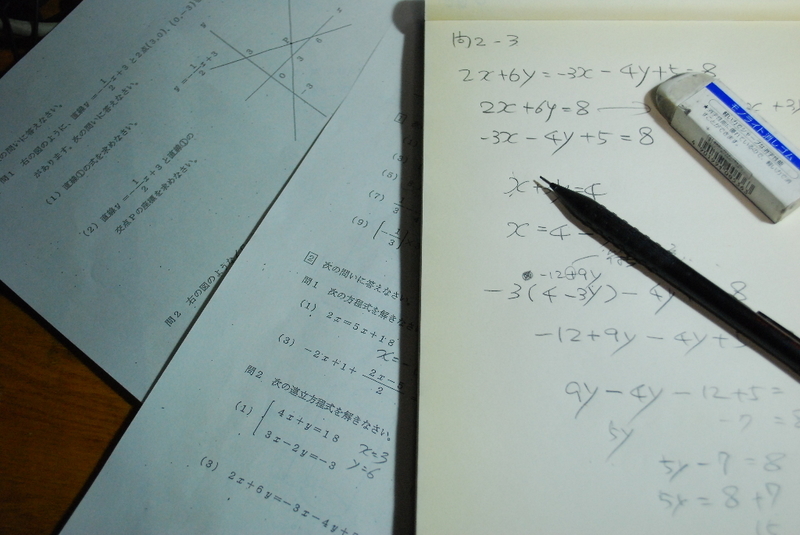 の問いに答えなさい。
問1 右の図のように、直線y=-1/2x+3と2点(3,0), (0,-3)
があります。次の問いに答えなさい。
(1) 直線①の式を求めなさい。
(2) 直線y=-1/2x+3と直線①の
交点Pの座標を求めなさい。
y=-1/2x+3
y
P
3
6
0
3
-3
問2 右の図のような
(1)
(3)
(5)
(7)
(9)
2 次の問いに答えなさい。
問1 次の方程式を解きなさい
(1) 2x=5x+18
x=-
(3) -2x+1+
問2 次の連立方程式を解きなさい。
(1) 4x+y=18
3x-2y=-3
x=3
y=6
(3) 2x+6y=-3x-4y+
問2-3
2x+6y=-3x-4y+5=8
2x+6y=8
x+3y
-3x-4y+5=8
x+ y=4
x=4
-12+9y
-3(4-3y)-4y 8
-12+9y-4y+5
9y-4y-12+5=
5y -7=8
5y-7=8
5y=8+7
15
モノライト消しゴム